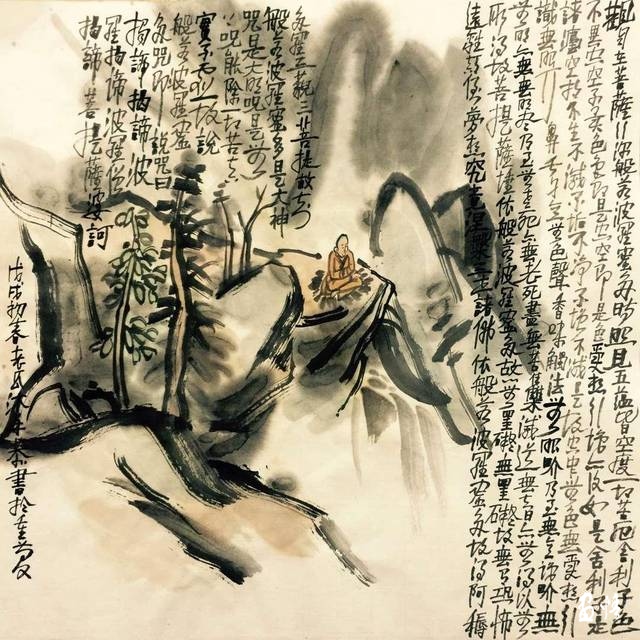 觀自在菩薩行深般若波羅蜜多時照見五蘊皆空度一切苦厄舍利子色
不異空空不異色色即是空空即是色受想行識亦復如是舍利子是
諸法空相不生不滅不垢不淨不增不減是故空中無色無受想行
識無眼耳鼻舌身意無色聲香味觸法無眼界乃至無意識界無
無明亦無無明盡乃至無老死亦無老死盡無苦集滅道無智亦無得以無
所得故菩提薩埵依般若波羅蜜多故心無罣礙無罣礙故無有恐怖
遠離顛倒夢想究竟涅槃三世諸佛依般若波羅蜜多故得阿耨
多羅三藐三菩提故知
般若波羅蜜多是大神
咒是大明咒是無上
咒能除一切苦真
實不虛故說
般若波羅蜜
多咒即說咒曰
揭諦揭諦波
羅揭諦波羅僧
揭諦菩提薩婆訶
戊戌初春 書於